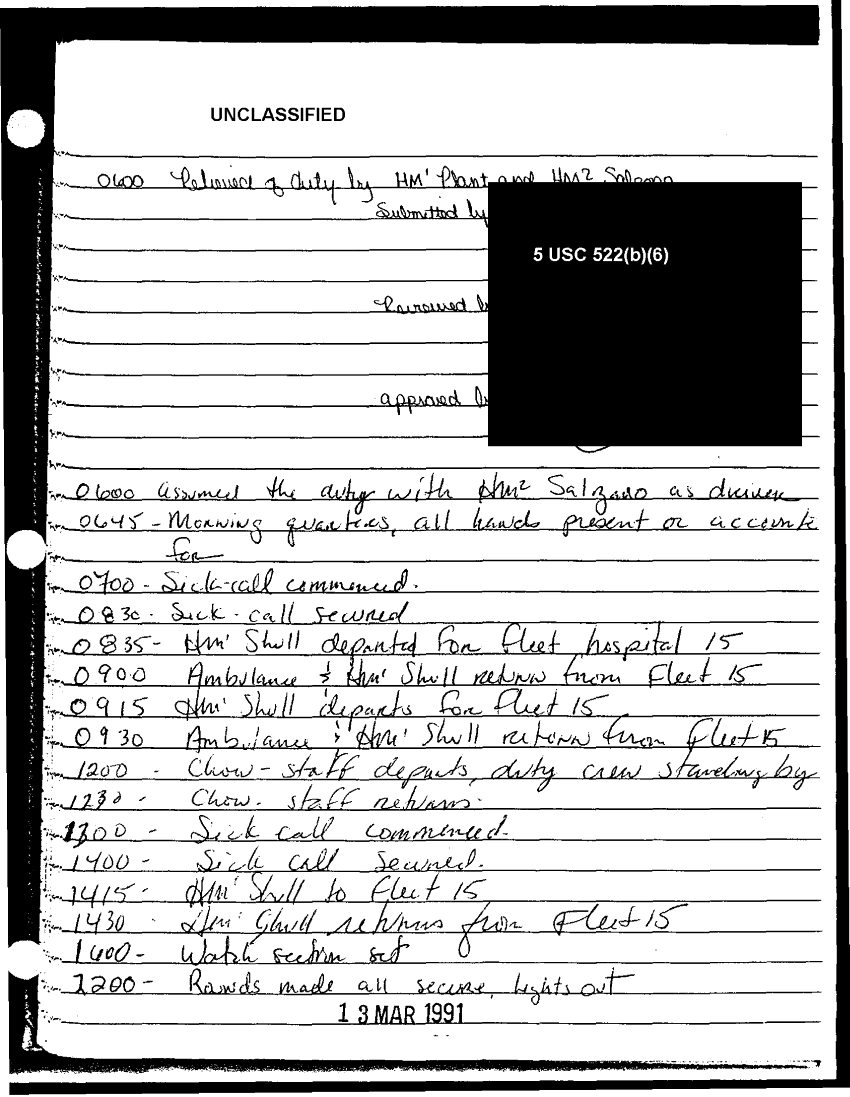 UNCLASSIFIED
0600 Relieved of duty by HM¹ Plant and HM2 Salzano
Submitted by
5 USC 522(b)(6)
Reviewed b
approved b
0600 assumed the duty with HM2 Salzano as driver
0645 - Morning quarters, all hands present or accounte
for
0700 - Sick-call commenced.
0830 - Sick-call secured
0835 - HM¹ Shull departed for fleet hospital 15
0900 Ambulance & HM¹ Shull return from Fleet 15
0915 HM¹ Shull departs for fleet 15
0930 Ambulance & HM¹ Shull return from fleet 15
1200 - Chow - staff departs, duty crew standing by
1230 - Chow - staff returns.
1300 - Sick call commenced.
1400 - Sick call secured.
1415 - HM¹ Shull to fleet 15
1430 - HM¹ Shull returns from Fleet 15
1600 - Watch section set
2200 - Rounds made all secure, lights out
13 MAR 1991